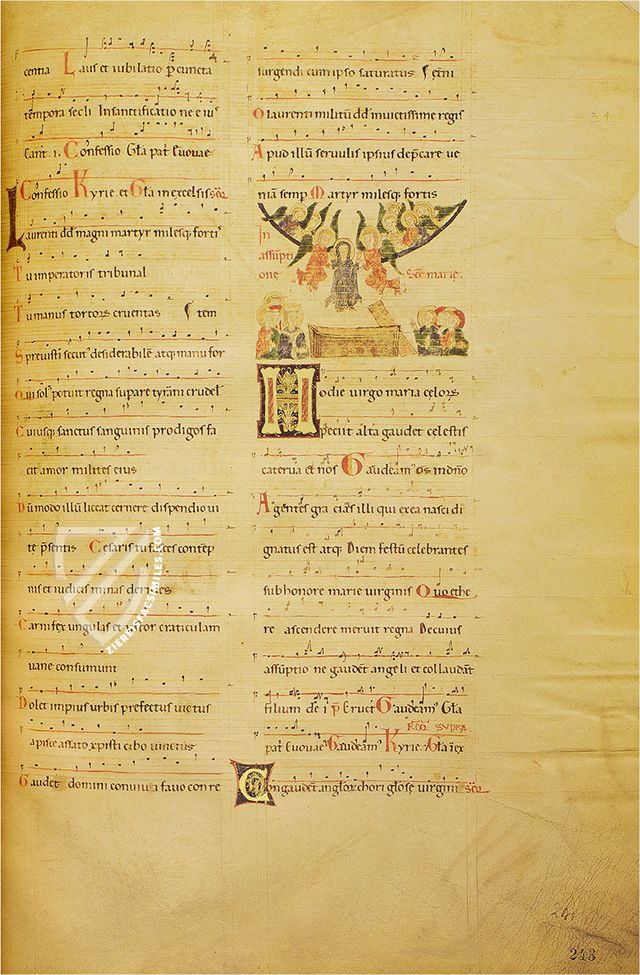 centia Laus et iubilatio p̄ cuncta
tempora secli In sanctificatione ei uſ
Sant. i. Confessio Gl̄a pat̄ Euouae
Confessio Kyrie. et Gl̄a in excelsis seq̄
Laurenti dd̄ magni martyr milesq; fortis
Tu imperatoris tribunal
Tu manus tortorū cruentas Item
Sprevisti secut' desiderabilē atq; manu for
Qui sol' potuit regna supare tyrāni crudel'
Cuiusq; sanctus sanguinis prodigos fa
cit amor milites eius
Dūmodo illū liceat cernere dispendio ui
te p̄sentis Cesaris tu fasces contēp
nis et iudicis minas derides
Carnifex ungulas et ustor craticulam
uane consumunt
Dolet impius urbis prefectus victus
a pisce assato xp̄isti cibo uinctus
Gaudet domini conuiua fauo con re
surgendi cum ipso saturatus Itē ni
O laurenti militū dd̄ inuictissime regis
Apud illū seruulis ipsius dep̄care ue
niā semp Martyr milesq; fortis
In assūpti one scē marie.
Hodie virgo maria cęlorū
petiit alta gaudet celestis
caterua et nos Gaudeam' oīs in dn̄o
Agentes gr̄a
illi qui ex ea nasci di
gnatus est atq; Diem festū celebrantes
sub honore marie virginis Quo ethe
re ascendere meruit regna De cuius
assūptione gaudent angeli et collaudāt
filium dei p̄ Eruct Gaudeam' Gl̄a
Req̄ supra.
pat̄ Euouae Gaudeam' Kyrie. Gl̄a i ex
Congaudet anglor̄ chori gl̄ose virgini seq̄
ZIEREIS FACSIMILES.COM
243